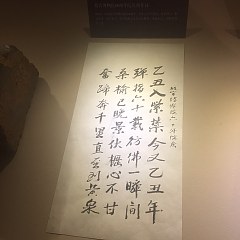 乙丑入紫禁今又乙丑年
彈指六十載彷彿一瞬間
桑榆已晚景伏櫪心不甘
奮蹄奔千里直至到黄泉